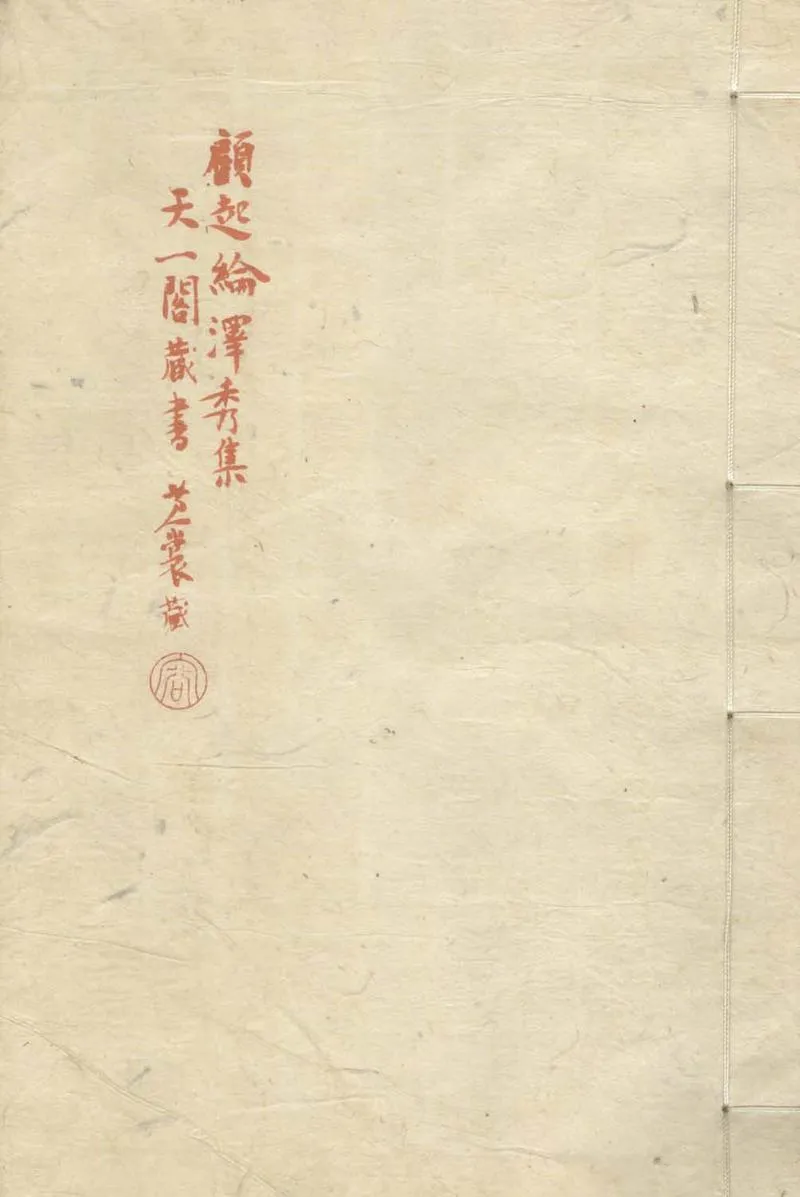 顧起綸澤秀集
天一閣藏書 芝裳藏